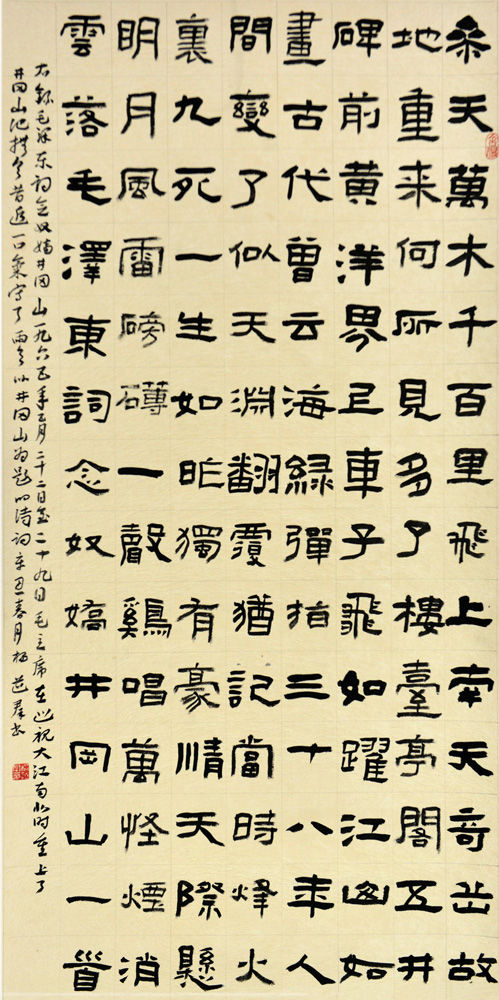 參天萬木千百里飛上南天奇岳故
地重来何所見多了樓臺亭閣五井
碑前黄洋界上車子飛如躍江山如
畫古代曾云海緑彈指三十八年人
間變了似天淵翻覆猶記當時烽火
裏九死一生如昨獨有豪情天際懸
明月風雷磅礴一聲鷄唱萬怪煙消
雲落毛澤東詞念奴嬌井岡山一首
右錄毛澤东词念奴嬌井冈山一九六五年五月二十二日至二十九日毛主席在巡視大江南北时重上了
井冈山他撫今昔追一口氣寫了兩首以井冈山为題的詩词辛丑春月